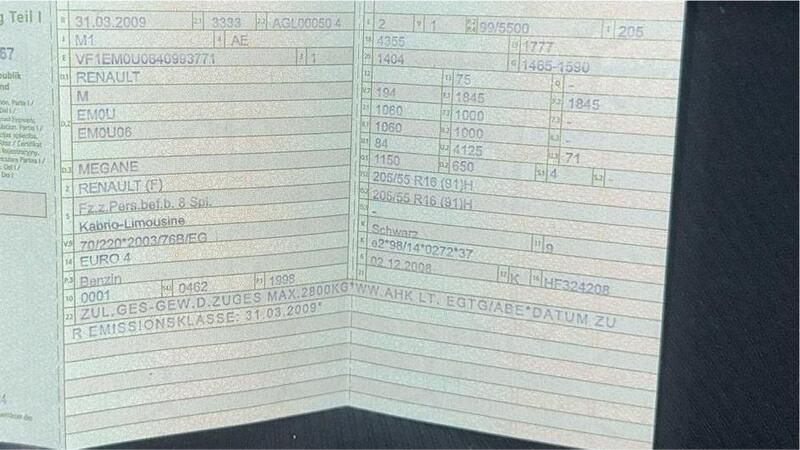 g Teil I
67
publik
nd
B 31.03.2009 2.1 3333 2.2 AGL00050 4
J M1 4 AE
E VF1EM0U0640993771 3 1
D.1 RENAULT
M
D.2 EM0U
EM0U06
D.3 MEGANE
2 RENAULT (F)
5 Fz.z.Pers.bef.b. 8 Spl.
Kabrio-Limousine
V.9 70/220*2003/76B/EG
14 EURO 4
P.3 Benzin
10 0001 14.1 0462 P.1 1998
22 ZUL.GES-GEW.D.ZUGES MAX.2800KG*WW.AHK LT. EGTG/ABE*DATUM ZU
R EMISSIONSKLASSE: 31.03.2009*
L 2 9 1 P.2 P.4 99/5500 T 205
18 4355 19 1777
20 1404 G 1465-1590
12 - 13 75 Q -
V.7 194 F.1 1845 F.2 1845
7.1 1060 7.2 1000 7.3 -
8.1 1060 8.2 1000 8.3 -
U.1 84 U.2 4125 U.3 71
O.1 1150 O.2 650 S.1 4 S.2 -
15.1 205/55 R16 (91)H
15.2 205/55 R16 (91)H
15.3 -
R Schwarz 11 9
K e2*98/14*0272*37
6 02.12.2008 17 K 16 HF324208
21